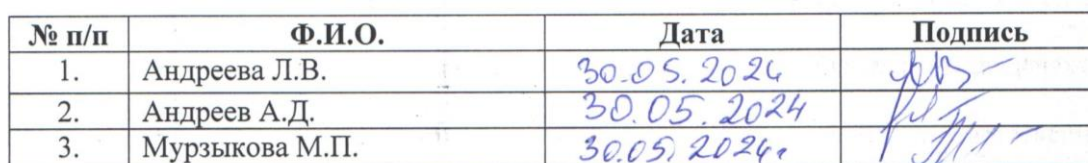 № п/п Ф.И.О. Дата Подпись
1. Андреева Л.В. 30.05.2024
2. Андреев А.Д. 30.05.2024
3. Мурзыкова М.П. 30.05.2024г